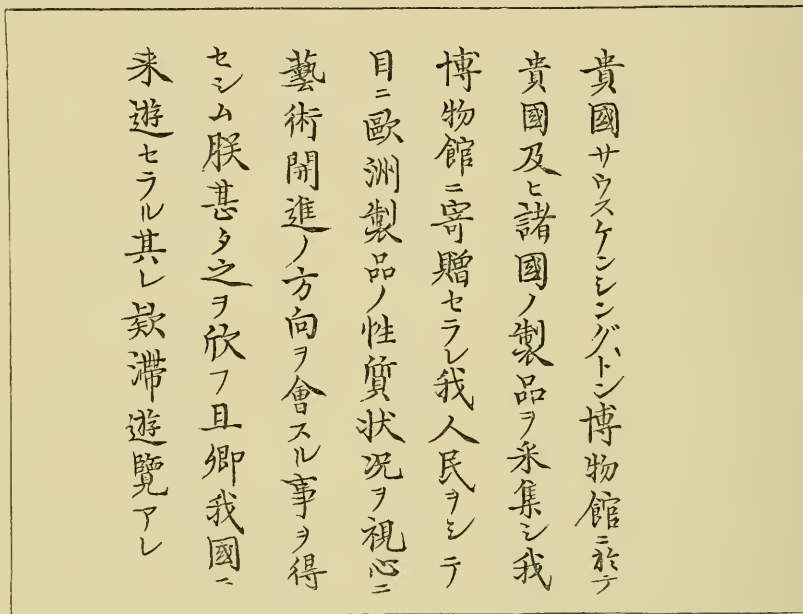 貴國サウスケンシングトン博物館ニ於テ
貴國及ヒ諸國ノ製品ヲ采集シ我
博物館ニ寄贈セラレ我人民ヲシテ
目ニ歐洲製品ノ性質状況ヲ視心ニ
藝術開進ノ方向ヲ會スル事ヲ得
セシム朕甚タ之ヲ欣フ且卿我國ニ
来遊セラル其レ欵滞遊覽アレ